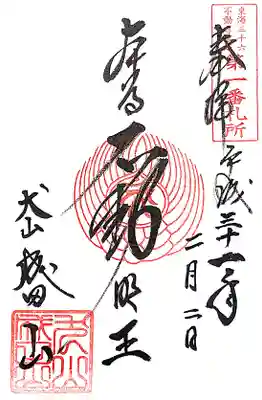 東海三十六
不動
第一番札所
奉拝 平成三十一年
二月二日
本尊 不動明王
犬山 成田山